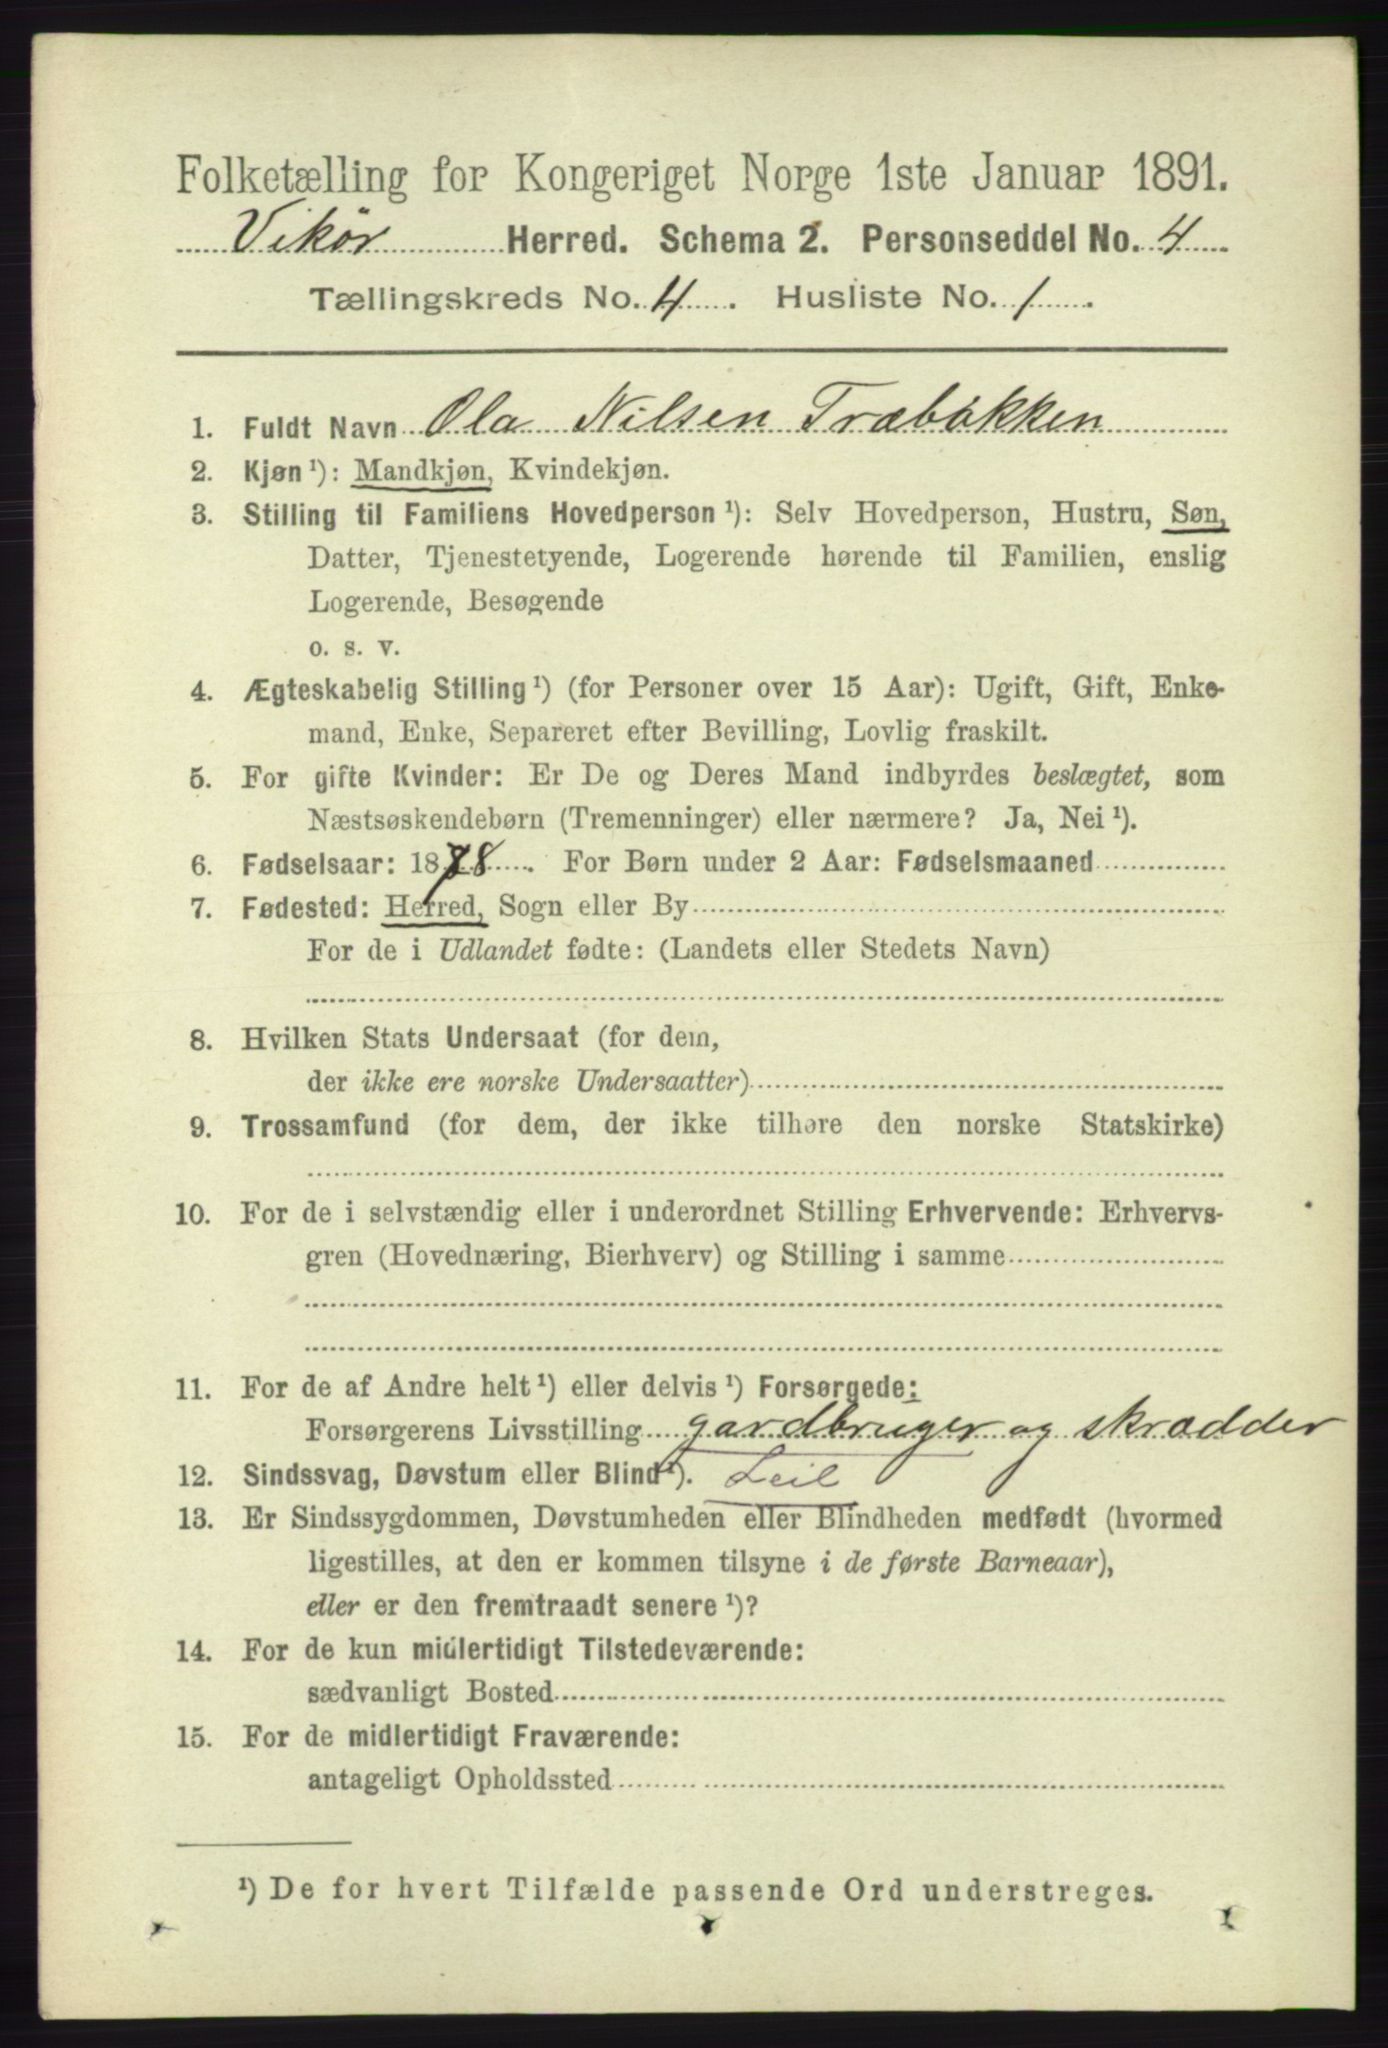 Folketælling for Kongeriget Norge 1ste Januar 1891.
Vikör Herred. Schema 2. Personseddel No. 4
Tællingskreds No. 4. Husliste No. 1.
1. Fuldt Navn Ola Nilsen Træbökken
2. Kjøn¹): Mandkjøn, Kvindekjøn.
3. Stilling til Familiens Hovedperson¹): Selv Hovedperson, Hustru, Søn,
Datter, Tjenestetyende, Logerende hørende til Familien, enslig
Logerende, Besøgende
o. s. v.
4. Ægteskabelig Stilling¹) (for Personer over 15 Aar): Ugift, Gift, Enke-
mand, Enke, Separeret efter Bevilling, Lovlig fraskilt.
5. For gifte Kvinder: Er De og Deres Mand indbyrdes beslægtet, som
Næstsøskendebørn (Tremenninger) eller nærmere? Ja, Nei¹).
6. Fødselsaar: 1878. For Børn under 2 Aar: Fødselsmaaned
7. Fødested: Herred, Sogn eller By
For de i Udlandet fødte: (Landets eller Stedets Navn)
8. Hvilken Stats Undersaat (for dem,
der ikke ere norske Undersaatter)
9. Trossamfund (for dem, der ikke tilhøre den norske Statskirke)
10. For de i selvstændig eller i underordnet Stilling Erhvervende: Erhvervs-
gren (Hovednæring, Bierhverv) og Stilling i samme
11. For de af Andre helt¹) eller delvis¹) Forsørgede:
Forsørgerens Livsstilling gardbruger og skrædder
12. Sindssvag, Døvstum eller Blind¹). Leil
13. Er Sindssygdommen, Døvstumheden eller Blindheden medfødt (hvormed
ligestilles, at den er kommen tilsyne i de første Barneaar),
eller er den fremtraadt senere¹)?
14. For de kun midlertidigt Tilstedeværende:
sædvanligt Bosted
15. For de midlertidigt Fraværende:
antageligt Opholdssted
¹) De for hvert Tilfælde passende Ord understreges.